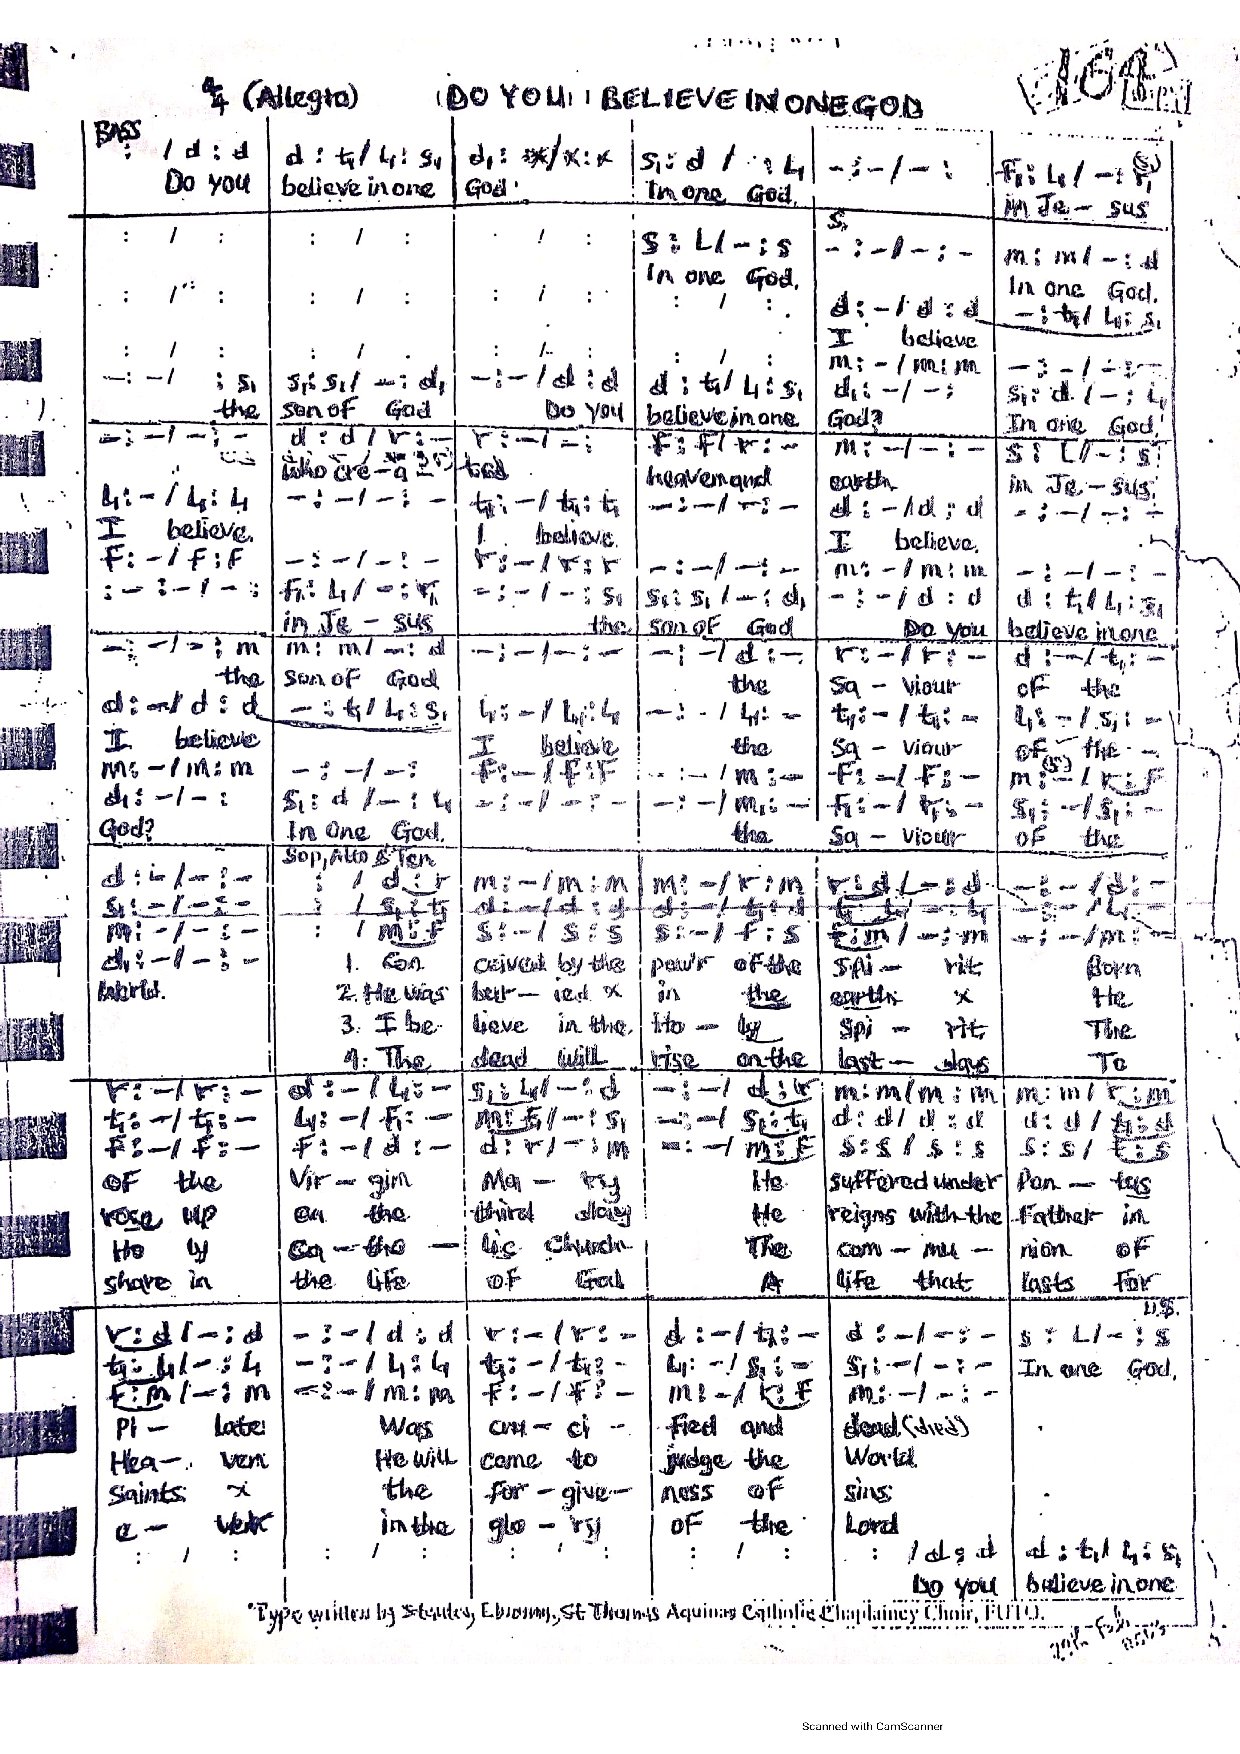 4/4 (Allegro) DO YOU BELIEVE IN ONE GOD
BASS
: / d : d d : t₁ / l₁ : s₁ d₁ : x / x : x s₁ : d / : l₁ - : - / - : f₁ : l₁ / - : r₁
Do you believe in one God. In one God. in Je - sus
: / : : / : / : s : L / - : s - : - / - : - m : m / - : d
In one God. In one God.
: / : : / : / : : / : d : - / d : d - : t₁ / l₁ : s₁
I believe
: / : : / . : / : : / : m : - / m : m - : - / - : -
- : - / : s₁ s₁ : s₁ / - : d₁ - : - / d : d d : t₁ / l₁ : s₁ d₁ : - / - : s₁ : d / - : l₁
the son of God Do you believe in one God? In one God.
- : - / - : - d : d / r : - r : - / - : f : f / r : - m : - / - : - s : L / - : s
who cre - a - ted heaven and earth in Je - sus.
l₁ : - / l₁ : l₁ - : - / - : - t₁ : - / t₁ : t₁ - : - / - : - d : - / d : d - : - / - : -
I believe. I believe. I believe.
f : - / f : f - : - / - : - r : - / r : r - : - / - : - m : - / m : m - : - / - : -
: - : - / - : f₁ : l₁ / - : r₁ - : - / - : s₁ s₁ : s₁ / - : d₁ - : - / d : d d : t₁ / l₁ : s₁
in Je - sus the son of God Do you believe in one
- : - / - : m m : m / - : d - : - / - : - - : - / d : - r : - / r : - d : - / t₁ : -
the son of God the Sa - viour of the
d : - / d : d - : t₁ / l₁ : s₁ l₁ : - / l₁ : l₁ - : - / l₁ : - t₁ : - / t₁ : - l₁ : - / s₁ : -
I believe I believe the Sa - viour of the -
m : - / m : m - : - / - : f : - / f : f - : - / m : - f : - / f : - m : - / r : f
d₁ : - / - : s₁ : d / - : l₁ - : - / - : - - : - / m₁ : - f₁ : - / r₁ : - s₁ : - / s₁ : -
God? In one God. the Sa - viour of the
Sop, Alto & Ten
d : - / - : - : / d : r m : - / m : m m : - / r : m r : d / - : d - : - / d : -
s₁ : - / - : - : / s₁ : t₁ d : - / d : d d : - / t₁ : d t₁ : l₁ / - : l₁ - : - / l₁ : -
m : - / - : - : / m : f s : - / s : s s : - / f : s f : m / - : m - : - / m : -
d₁ : - / - : - 1. Con ceived by the pow'r of the Spi - rit Born
World. 2. He was ber - ied x in the earth x He
3. I be lieve in the Ho - ly Spi - rit, The
4. The dead will rise on the last - days To
r : - / r : - d : - / l₁ : - s₁ : l₁ / - : d - : - / d : r m : m / m : m m : m / r : m
t₁ : - / t₁ : - l₁ : - / f₁ : - m₁ : f₁ / - : s₁ - : - / s₁ : t₁ d : d / d : d d : d / t₁ : d
f : - / f : - f : - / d : - d : r / - : m - : - / m : f s : s / s : s s : s / f : s
of the Vir - gin Ma - ry He suffered under Pon - tus
rose up on the third day He reigns with the Father in
Ho ly Ca - tho - lic Church The com - mu - nion of
share in the life of God A life that lasts for
D.S.
r : d / - : d - : - / d : d r : - / r : - d : - / t₁ : - d : - / - : - s : L / - : s
t₁ : l₁ / - : l₁ - : - / l₁ : l₁ t₁ : - / t₁ : - l₁ : - / s₁ : - s₁ : - / - : - In one God.
f : m / - : m - : - / m : m f : - / f : - m : - / r : f m : - / - : -
Pi - late Was cru - ci - fied and dead (died)
Hea - ven He will come to judge the World
Saints x the for - give - ness of sins
e - ver in the glo - ry of the Lord
: / : : / : : / : : / : : / d : d d : t₁ / l₁ : s₁
Do you believe in one
*Type written by Stanley, Ebonny, St Thomas Aquinas Catholic Chaplaincy Choir, FUTO.
Scanned with CamScanner